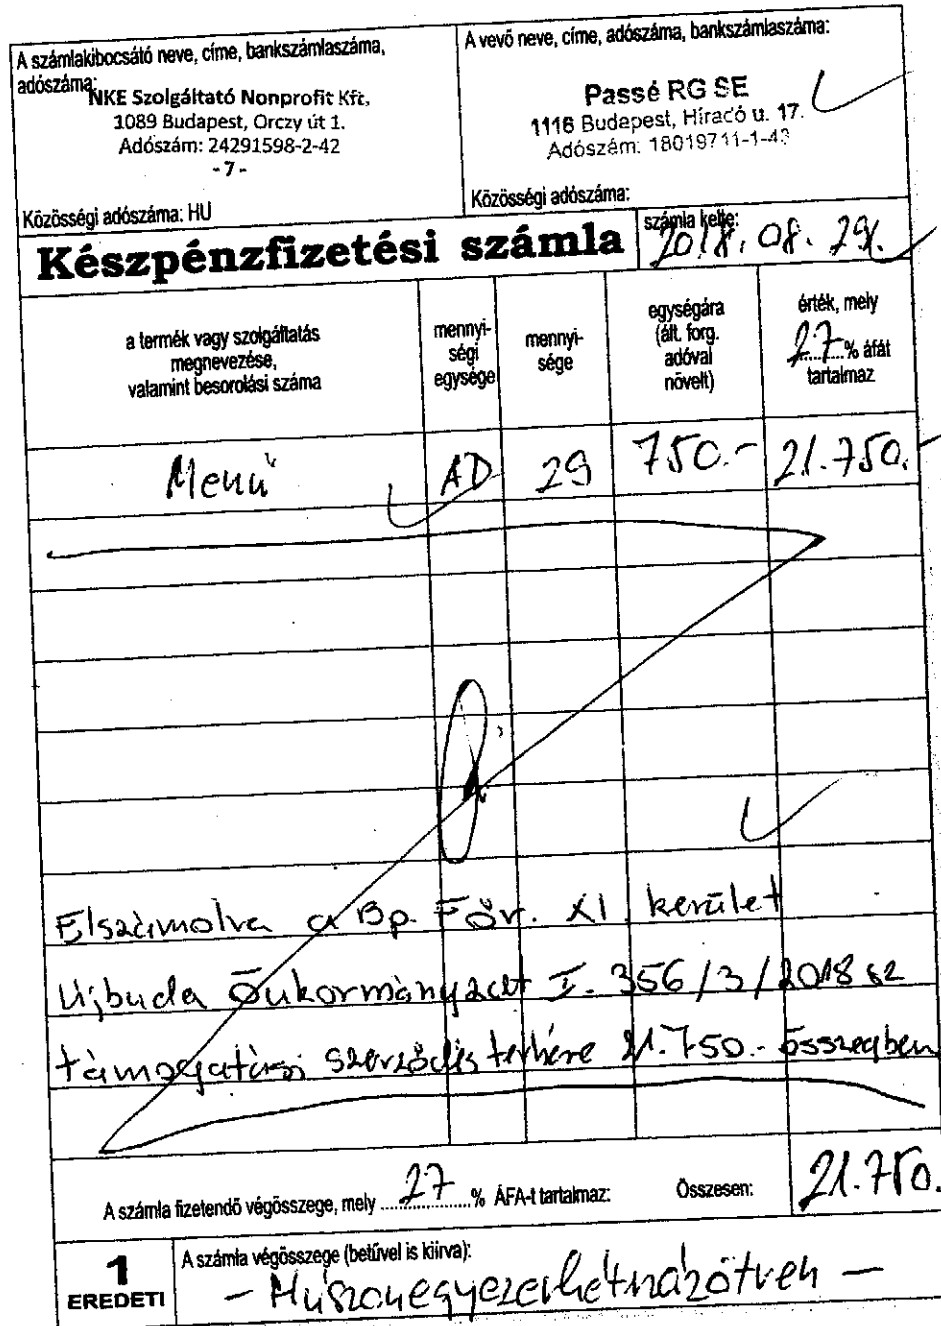 A számlakibocsátó neve, címe, bankszámlaszáma,
adószáma:
NKE Szolgáltató Nonprofit Kft.
1089 Budapest, Orczy út 1.
Adószám: 24291598-2-42
- 7 -
Közösségi adószáma: HU
A vevő neve, címe, adószáma, bankszámlaszáma:
Passé RG SE
1116 Budapest, Híradó u. 17.
Adószám: 18019711-1-43
Közösségi adószáma:
Készpénzfizetési számla
számla kelte:
2018. 08. 29.
a termék vagy szolgáltatás
megnevezése,
valamint besorolási száma
mennyi-
ségi
egysége
mennyi-
sége
egységára
(ált. forg.
adóval
növelt)
érték, mely
27 % áfát
tartalmaz
Menü AD 29 750.- 21.750.-
Elszámolva a Bp. Főv. XI. kerület
Újbuda Önkormányzat I. 356/3/2018 sz
támogatási szerződés terhére 21.750.- összegben
A számla fizetendő végösszege, mely 27 % ÁFA-t tartalmaz: Összesen: 21.750.
1
EREDETI
A számla végösszege (betűvel is kiírva):
- Huszonegyezerhétszázötven -